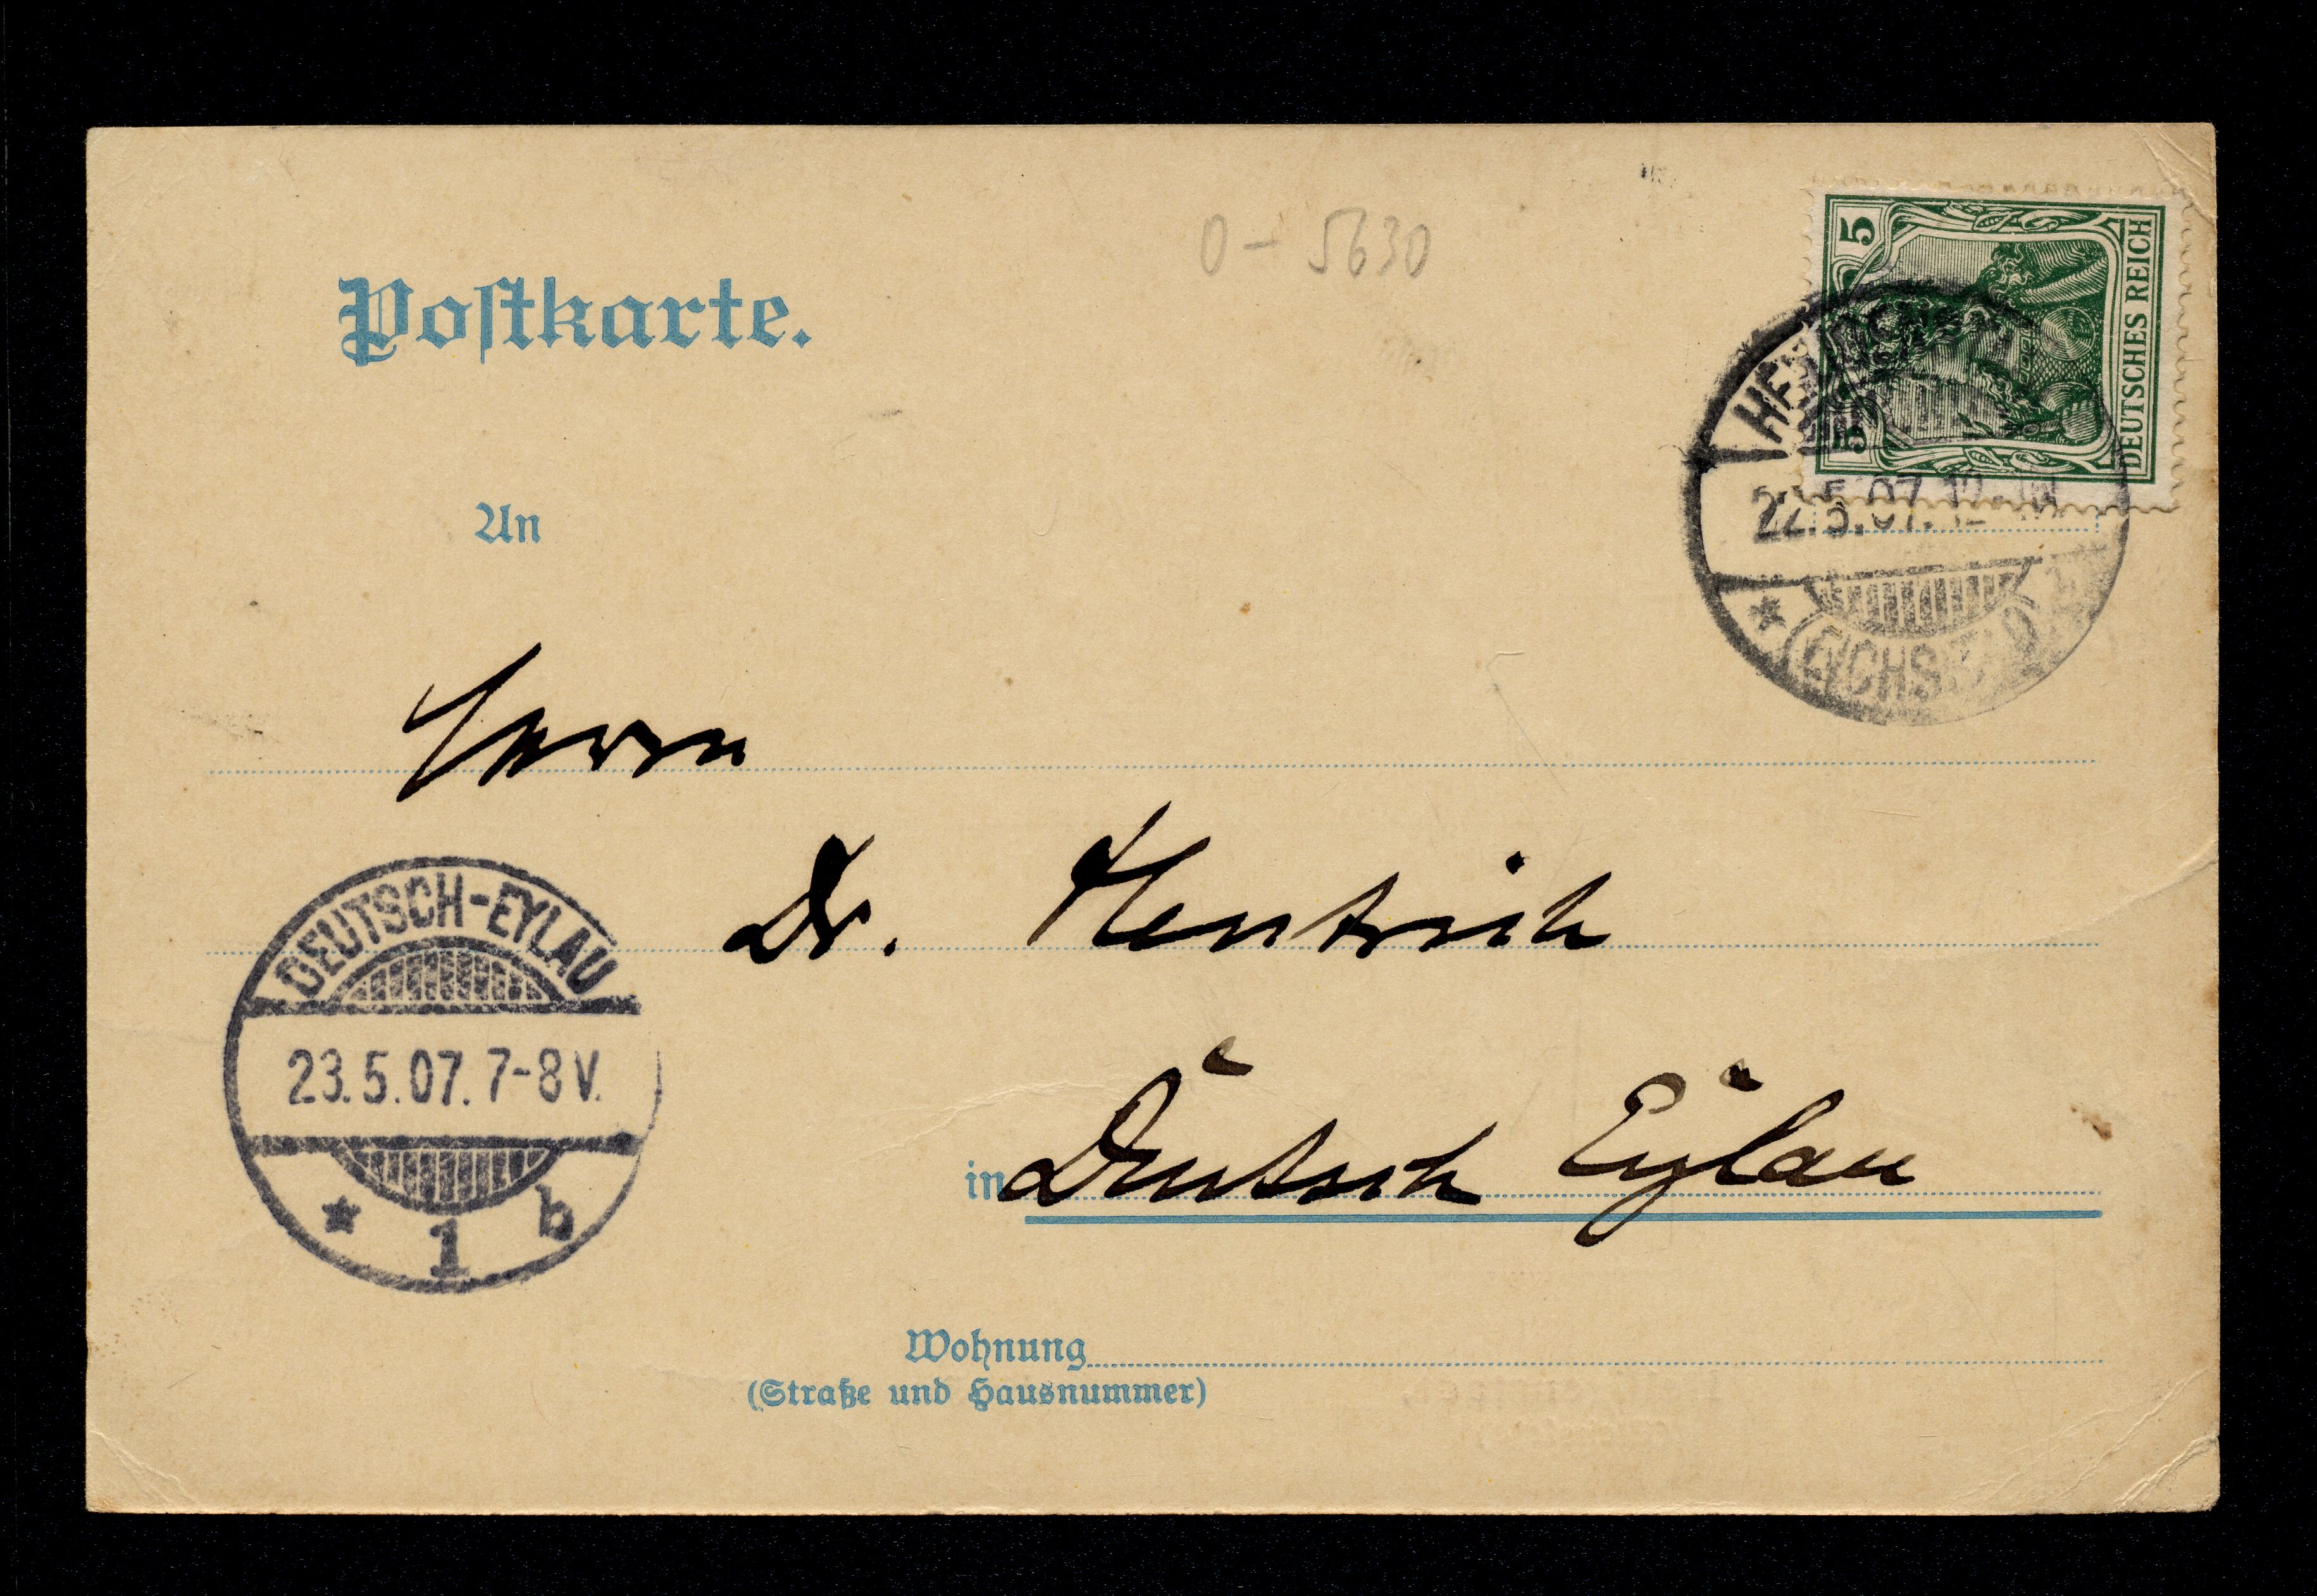 0-5630
Postkarte.
5
5
DEUTSCHES REICH
22.5.07.12
EICHSFELD
An
Herrn
Dr. Hentrich
in Deutsch Eylau
DEUTSCH-EYLAU
23.5.07.7-8V.
* 1 b
Wohnung
(Straße und Hausnummer)